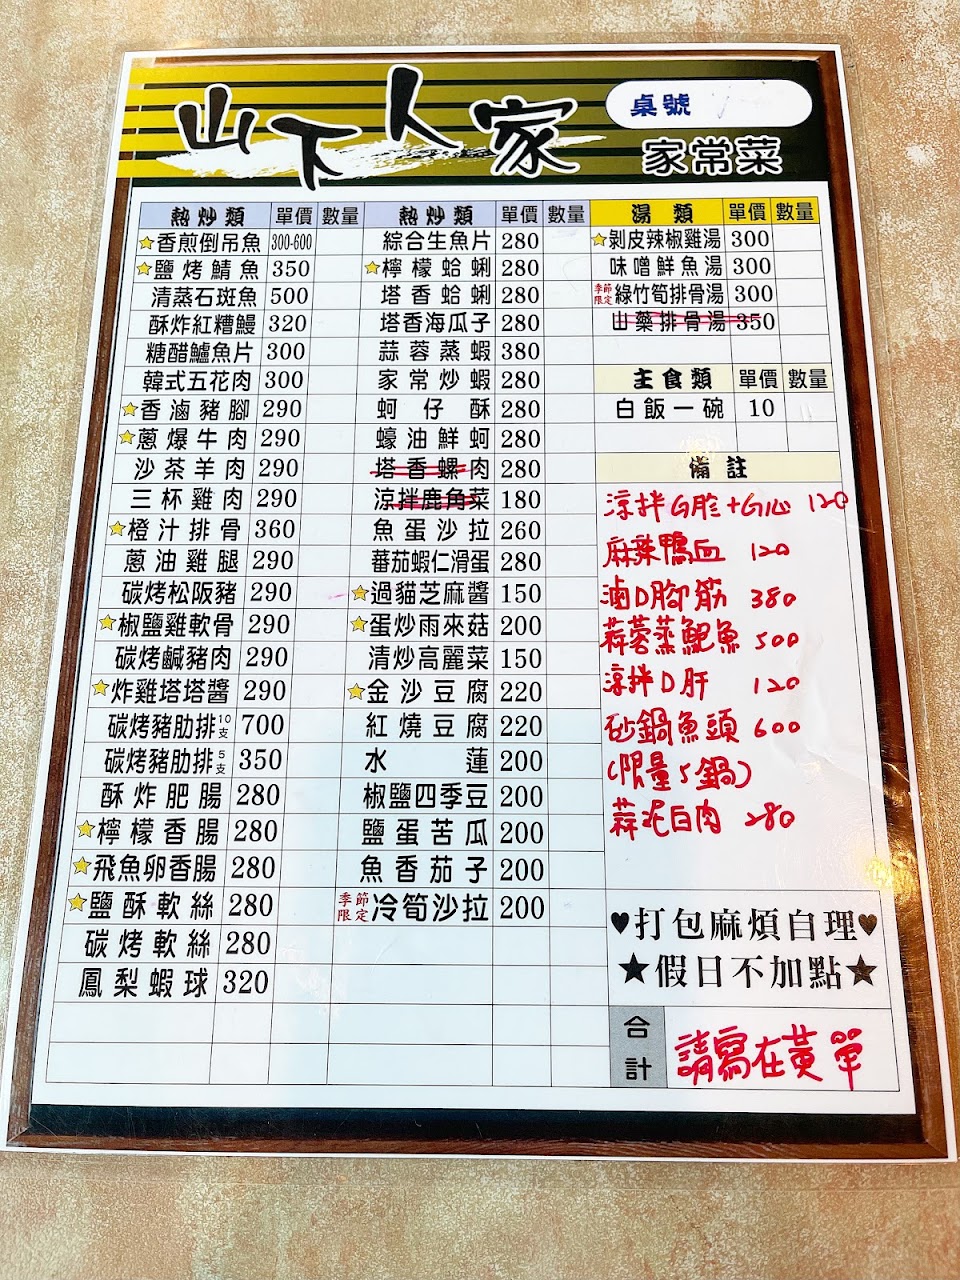 山下人家
桌號
家常菜
熱炒類 單價 數量
☆香煎倒吊魚 300-600
☆鹽烤鯖魚 350
清蒸石斑魚 500
酥炸紅糟鰻 320
糖醋鱸魚片 300
韓式五花肉 300
☆香滷豬腳 290
☆蔥爆牛肉 290
沙茶羊肉 290
三杯雞肉 290
☆橙汁排骨 360
蔥油雞腿 290
碳烤松阪豬 290
☆椒鹽雞軟骨 290
碳烤鹹豬肉 290
☆炸雞塔塔醬 290
碳烤豬肋排10支 700
碳烤豬肋排5支 350
酥炸肥腸 280
☆檸檬香腸 280
☆飛魚卵香腸 280
☆鹽酥軟絲 280
碳烤軟絲 280
鳳梨蝦球 320
熱炒類 單價 數量
綜合生魚片 280
☆檸檬蛤蜊 280
塔香蛤蜊 280
塔香海瓜子 280
蒜蓉蒸蝦 380
家常炒蝦 280
蚵仔酥 280
蠔油鮮蚵 280
塔香螺肉 280
涼拌鹿角菜 180
魚蛋沙拉 260
蕃茄蝦仁滑蛋 280
☆過貓芝麻醬 150
☆蛋炒雨來菇 200
清炒高麗菜 150
☆金沙豆腐 220
紅燒豆腐 220
水蓮 200
椒鹽四季豆 200
鹽蛋苦瓜 200
魚香茄子 200
季節限定 冷筍沙拉 200
湯類 單價 數量
☆剝皮辣椒雞湯 300
味噌鮮魚湯 300
季節限定 綠竹筍排骨湯 300
山藥排骨湯 350
主食類 單價 數量
白飯一碗 10
備註
涼拌G胗+G心 120
麻菜鴨血 120
滷D腳筋 380
蒜蓉蒸鮑魚 500
涼拌D肝 120
砂鍋魚頭 600
(限量5鍋)
蒜泥白肉 280
♥打包麻煩自理♥
★假日不加點★
合計
請寫在黃單